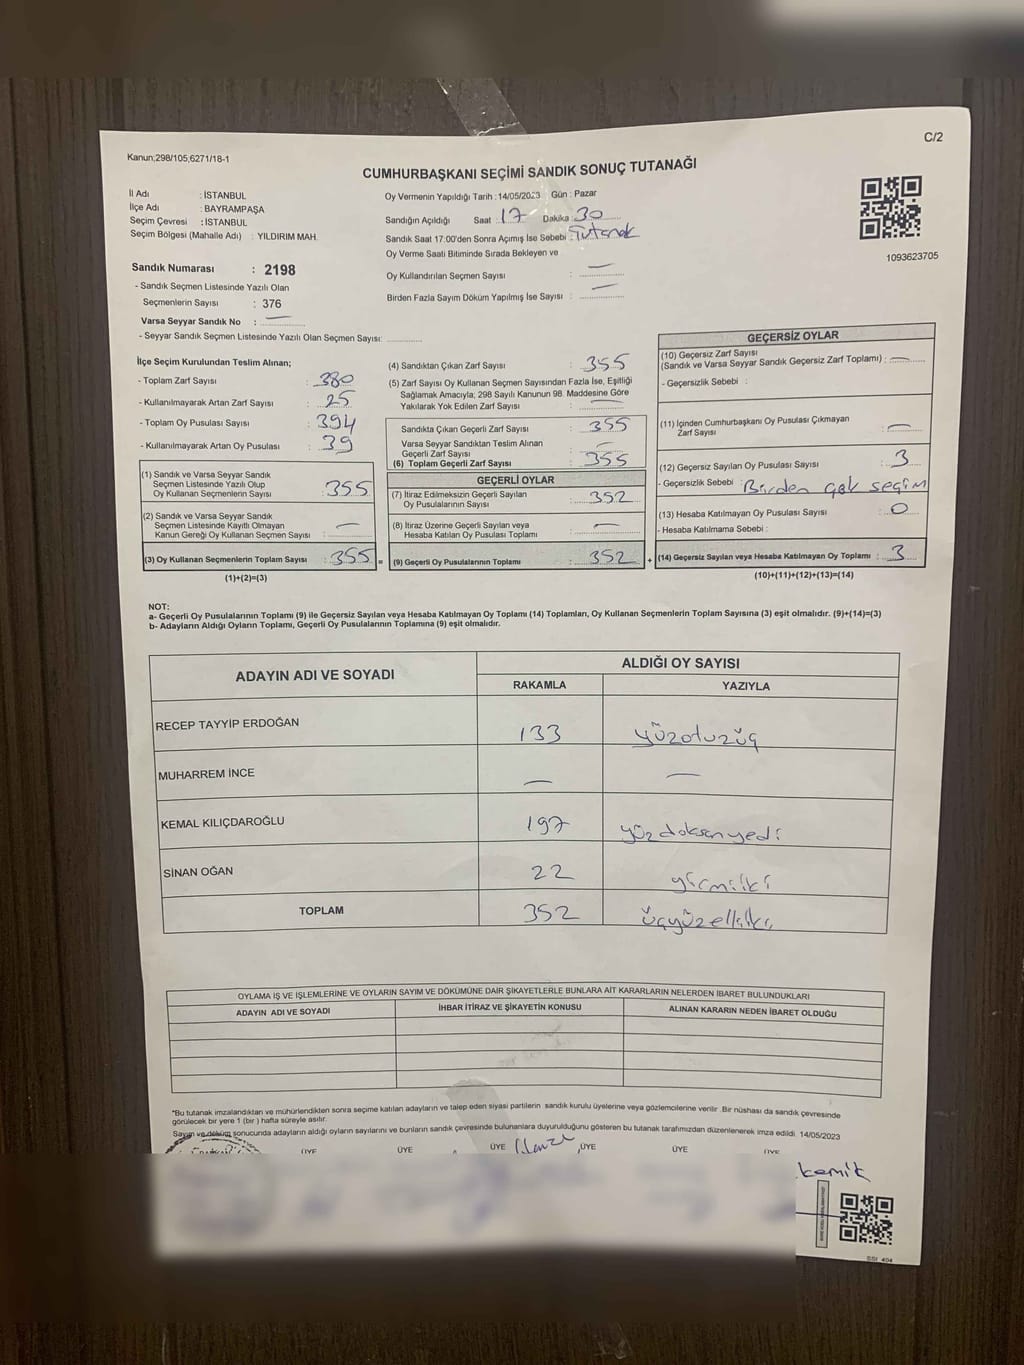 C/2
Kanun;298/105;6271/18-1
CUMHURBAŞKANI SEÇİMİ SANDIK SONUÇ TUTANAĞI
İl Adı : İSTANBUL
İlçe Adı : BAYRAMPAŞA
Seçim Çevresi : İSTANBUL
Seçim Bölgesi (Mahalle Adı) : YILDIRIM MAH.
Sandık Numarası : 2198
- Sandık Seçmen Listesinde Yazılı Olan
Seçmenlerin Sayısı : 376
Varsa Seyyar Sandık No : —
- Seyyar Sandık Seçmen Listesinde Yazılı Olan Seçmen Sayısı:
Oy Vermenin Yapıldığı Tarih : 14/05/2023 Gün : Pazar
Sandığın Açıldığı Saat : 17 Dakika : 30
Sandık Saat 17:00'den Sonra Açımış İse Sebebi : Tutanak
Oy Verme Saati Bitiminde Sırada Bekleyen ve
Oy Kullandırılan Seçmen Sayısı : —
Birden Fazla Sayım Döküm Yapılmış İse Sayısı : —
1093623705
İlçe Seçim Kurulundan Teslim Alınan;
- Toplam Zarf Sayısı : 380
- Kullanılmayarak Artan Zarf Sayısı : 25
- Toplam Oy Pusulası Sayısı : 394
- Kullanılmayarak Artan Oy Pusulası : 39
(1) Sandık ve Varsa Seyyar Sandık
Seçmen Listesinde Yazılı Olup
Oy Kullanan Seçmenlerin Sayısı : 355
(2) Sandık ve Varsa Seyyar Sandık
Seçmen Listesinde Kayıtlı Olmayan
Kanun Gereği Oy Kullanan Seçmen Sayısı : —
(3) Oy Kullanan Seçmenlerin Toplam Sayısı : 355 =
(1)+(2)=(3)
(4) Sandıktan Çıkan Zarf Sayısı : 355
(5) Zarf Sayısı Oy Kullanan Seçmen Sayısından Fazla İse, Eşitliği
Sağlamak Amacıyla; 298 Sayılı Kanunun 98. Maddesine Göre
Yakılarak Yok Edilen Zarf Sayısı : —
Sandıkta Çıkan Geçerli Zarf Sayısı : 355
Varsa Seyyar Sandıktan Teslim Alınan
Geçerli Zarf Sayısı : —
(6) Toplam Geçerli Zarf Sayısı : 355
GEÇERLİ OYLAR
(7) İtiraz Edilmeksizin Geçerli Sayılan
Oy Pusulalarının Sayısı : 352
(8) İtiraz Üzerine Geçerli Sayılan veya
Hesaba Katılan Oy Pusulası Toplamı : —
(9) Geçerli Oy Pusulalarının Toplamı : 352 +
GEÇERSİZ OYLAR
(10) Geçersiz Zarf Sayısı
(Sandık ve Varsa Seyyar Sandık Geçersiz Zarf Toplamı) : —
- Geçersizlik Sebebi :
(11) İçinden Cumhurbaşkanı Oy Pusulası Çıkmayan
Zarf Sayısı : —
(12) Geçersiz Sayılan Oy Pusulası Sayısı : 3
- Geçersizlik Sebebi : Birden çok seçim
(13) Hesaba Katılmayan Oy Pusulası Sayısı : 0
- Hesaba Katılmama Sebebi :
(14) Geçersiz Sayılan veya Hesaba Katılmayan Oy Toplamı : 3
(10)+(11)+(12)+(13)=(14)
NOT:
a- Geçerli Oy Pusulalarının Toplamı (9) ile Geçersiz Sayılan veya Hesaba Katılmayan Oy Toplamı (14) Toplamları, Oy Kullanan Seçmenlerin Toplam Sayısına (3) eşit olmalıdır. (9)+(14)=(3)
b- Adayların Aldığı Oyların Toplamı, Geçerli Oy Pusulalarının Toplamına (9) eşit olmalıdır.
ADAYIN ADI VE SOYADI
ALDIĞI OY SAYISI
RAKAMLA YAZIYLA
RECEP TAYYİP ERDOĞAN 133 yüzotuzüç
MUHARREM İNCE — —
KEMAL KILIÇDAROĞLU 197 yüzdoksanyedi
SİNAN OĞAN 22 yirmiiki
TOPLAM 352 üçyüzelliiki
OYLAMA İŞ VE İŞLEMLERİNE VE OYLARIN SAYIM VE DÖKÜMÜNE DAİR ŞİKAYETLERLE BUNLARA AİT KARARLARIN NELERDEN İBARET BULUNDUKLARI
ADAYIN ADI VE SOYADI İHBAR İTİRAZ VE ŞİKAYETİN KONUSU ALINAN KARARIN NEDEN İBARET OLDUĞU
*Bu tutanak imzalandıktan ve mühürlendikten sonra seçime katılan adayların ve talep eden siyasi partilerin sandık kurulu üyelerine veya gözlemcilerine verilir. Bir nüshası da sandık çevresinde
görülecek bir yere 1 (bir) hafta süreyle asılır.
Sayım ve döküm sonucunda adayların aldığı oyların sayılarını ve bunların sandık çevresinde bulunanlara duyurulduğunu gösteren bu tutanak tarafımızdan düzenlenerek imza edildi. 14/05/2023
ÜYE ÜYE ÜYE ÜYE ÜYE ÜYE
kemik
SSI 404